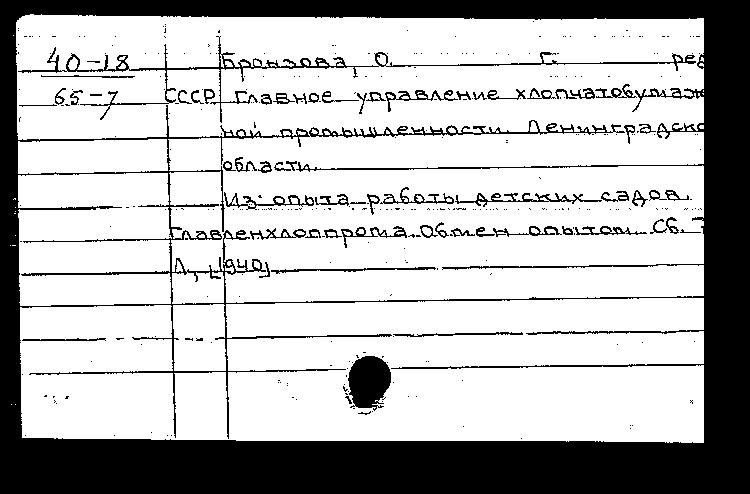 40-18 Бронзова, О. Г. ред
65-7 СССР Главное управление хлопчатобумаж
ной промышленности Ленинградско
области.
Из опыта работы детских садов
Главленхлоппрома. Обмен опытом. Сб.
Л., [1940]